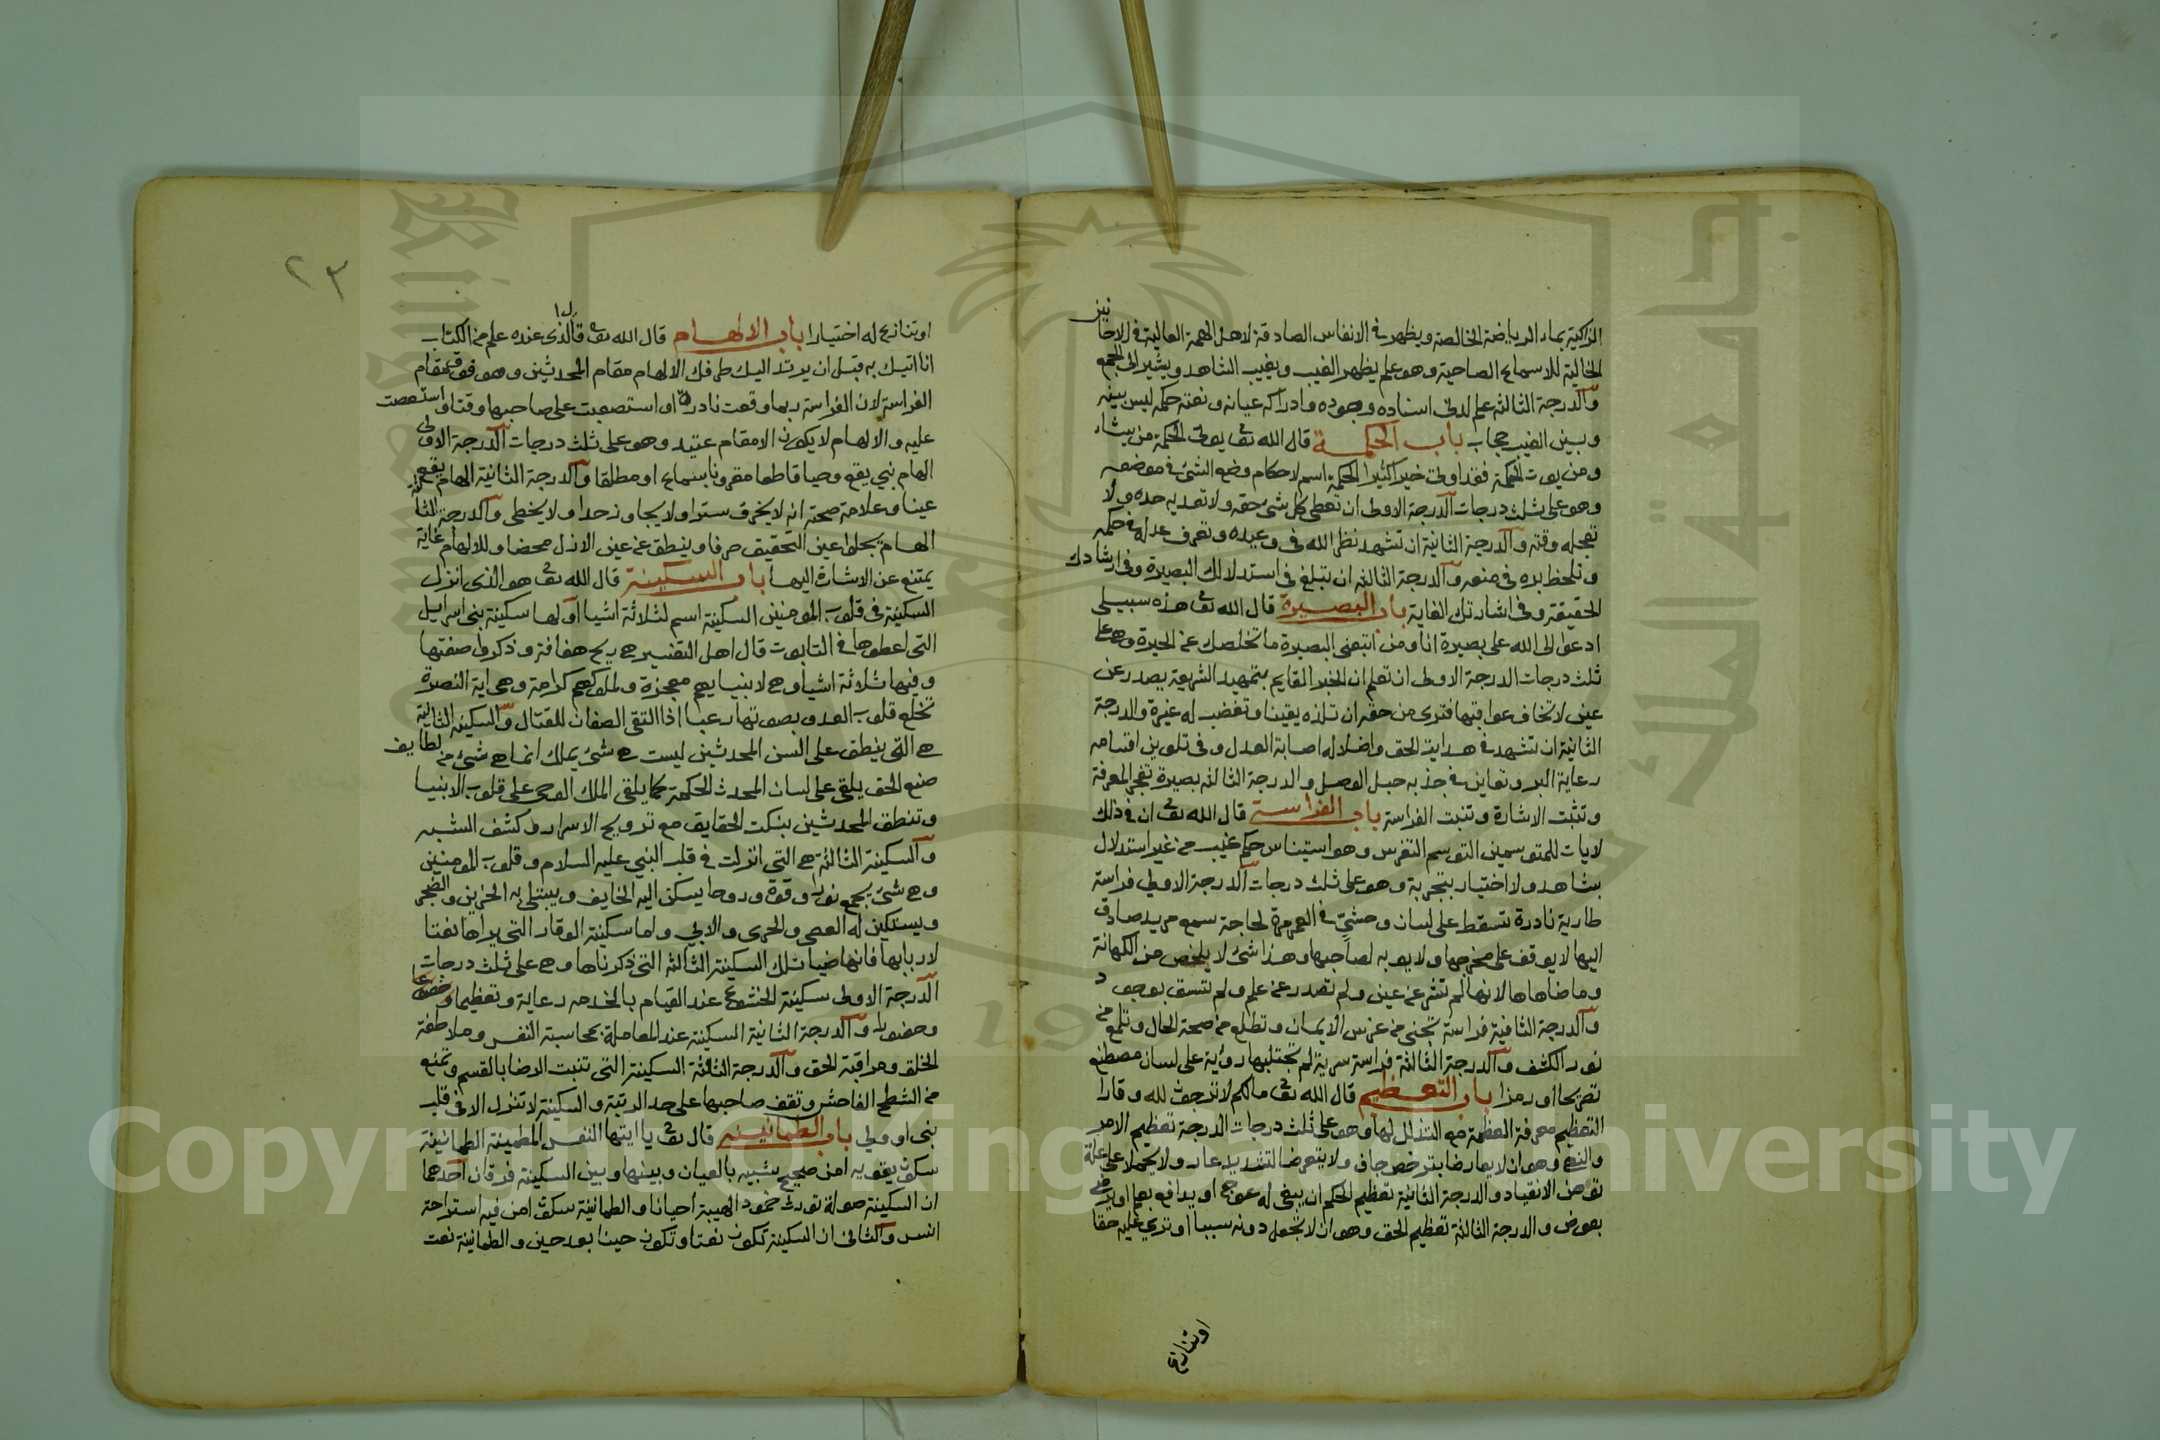 الزاكية بماء الرياضة الخالصة ويظهر في الانفاس الصادقة لاهل الهمة العالية في الاحايين
الخالية للاسماع الصاحية وهو علم يظهر الغيب ويغيب الشاهد ويشير الى الجمع
والدرجة الثالثة علم لدني اسناده وجوده وادراكه عيانه ونعته حكمه ليس بينه
وبين الغيب حجاب باب الحكمة قال الله تعـ يوتى الحكمة من يشاء
ومن يوت الحكمة فقد اوتي خيرا كثيرا الحكمة اسم لاحكام وضع الشئ في موضعه
وهو على ثلث درجات الدرجة الاولى ان تعطى كل شئ حقه ولا تعديه حده ولا
تعجله وقته والدرجة الثانية ان تشهد نظر الله في وعيده وتعرف عدله في حكمه
وتلحظ بره في منعه والدرجة الثالثه ان تبلغ في استدلالك البصيرة وفي ارشادك
الحقيقة وفي اشارتك الغاية باب البصيرة قال الله تعـ هذه سبيلى
ادعوا الى الله على بصيرة انا ومن اتبعنى البصيرة ما تخلصك عن الحيرة وهي على
ثلث درجات الدرجة الاولى ان تعلم ان الخبر القايم بتمهيد الشريعة يصدر عن
عين لا تخاف عواقبها فترى من حقه ان تلذه يقينا وتغضب له غيرة والدرجة
الثانية ان تشهد في هداية الحق واضلاله اصابة العدل وفي تلوين اقسامه
رعاية البر وتعاين في جذبه حبل الوصل والدرجة الثالثه بصيرة تفجر المعرفة
وتثبت الاشارة وتنبت الفراسة باب الفراسة قال الله تعـ ان في ذلك
لايات للمتوسمين التوسم التفرس وهو استيناس حكم غيب من غير استدلال
بشاهد ولا اختيار بتجربة وهو على ثلث درجات الدرجة الاولى فراسة
طارية نادرة تسقط على لسان وحشيّ في العمر مرة لحاجة سمع مريد صادق
اليها لا يوقف على مخرجها ولا يوبه لصاحبها وهذا شئ لا يلخص من الكهانة
وما ضاهاها لانها لم تشر عن عين ولم تصدر عن علم ولم تسق بوجود
والدرجة الثانية فراسة تجنى من غرس الايمان وتطلع من صحة الحال وتلمع من
نور الكشف والدرجة الثالثة فراسة سرية لم تجتلبها روية على لسان مصطنع
تصريحا او رمزا باب التعظيم قال الله تعـ مالكم لا ترجون لله وقارا
التعظيم معرفة العظمة مع التذلل لها وهو على ثلث درجات الدرجة تعظيم الامر
والنهي وهو ان لا يعارضا بترخص جاف ولا يتعرضا لتشديد عار ولا يحملا على علة
توهن الانقياد والدرجة الثانية تعظيم الحكم ان يبغى له عوج او يدافع بعلم او يرضى
بعوض والدرجة الثالثة تعظيم الحق وهو ان لا تجعل دونه سببا او ترى عليه حقا
او تنازع
٢٣
او تنازع له اختيارا باب الالهام قال الله تعـ قال الذى عنده علم من الكتاب
انا اتيك به قبل ان يرتد اليك طرفك الالهام مقام المحدثين وهو فوق مقام
الفراسة لان الفراسة ربما وقعت نادرة او استصعبت على صاحبها وقتا واستعصت
عليه والالهام لا يكون الا مقام عتيد وهو على ثلث درجات الدرجة الاولى
الهام نبي يقع وحيا قاطعا مقرونا بسماع او مطلقا والدرجة الثانية الهام يقع
عينا وعلامة صحته انه لا يخرق سترا ولا يجاوز حدا ولا يخطى والدرجة الثالثة
الهام يجلوا عين التحقيق صرفا وينطق عن عين الازل محضا وللالهام غاية
يمتنع عن الاشارة اليها باب السكينة قال الله تعـ هو الذى انزل
السكينة في قلوب المومنين السكينة اسم لثلاثة اشيا اولها سكينة بنى اسرايل
التى اعطوها في التابوت قال اهل التفسير هي ريح هفافة وذكروا صفتها
وفيها ثلاثة اشيا وهي لانبيايهم معجزة ولملوكهم كرامة وهي اية النصرة
تخلع قلوب العدو بصوتها رعبا اذا التقى الصفان للقتال والسكينة الثانية
هي التى ينطق على السن المحدثين ليست هي شئ يملك انما هي شئ من لطايف
صنع الحق يلقى على لسان المحدث الحكمة كما يلقى الملك الوحي على قلوب الانبيا
وتنطق المحدثين بنكت الحقايق مع ترويح الاسرار وكشف الشبه
والسكينة الثالثة هي التى انزلت في قلب النبي عليه السلام وقلوب المومنين
وهي شئ يجمع نورا وقوة وروحا يسكن اليه الخايف ويتسلى به الحزين والضجر
ويستكين له العصي والجرى والابي واما سكينة الوقار التى يراها نعتا
لاربابها فانها ضيا تلك السكينة الثالثه التى ذكرناها وهي على ثلث درجات
الدرجة الاولى سكينة الخشوع عند القيام بالخدمه رعاية وتعظيما وخضوعا
وحضورا والدرجة الثانية السكينة عند المعاملة بمحاسبة النفس وملاطفة
الخلق ومراقبة الحق والدرجة الثالثة السكينة التى تنبت الرضا بالقسم وتمنع
من الشطح الفاحش وتقف صاحبها على حد الرتبة والسكينة لا تنزل الا في قلب
نبى او ولي باب الطمانينة قال تعـ يا ايتها النفس المطمينة الطمانينة
سكون يقويه امن صحيح شبيه بالعيان وبينها وبين السكينة فرقان احدهما
ان السكينة صولة تورث خمود الهيبة احيانا والطمانينة سكون امن فيه استراحة
انس والثانى ان السكينة تكون نعتا وتكون حينا بعد حين والطمانينة نعت
Copyright © King Saud University